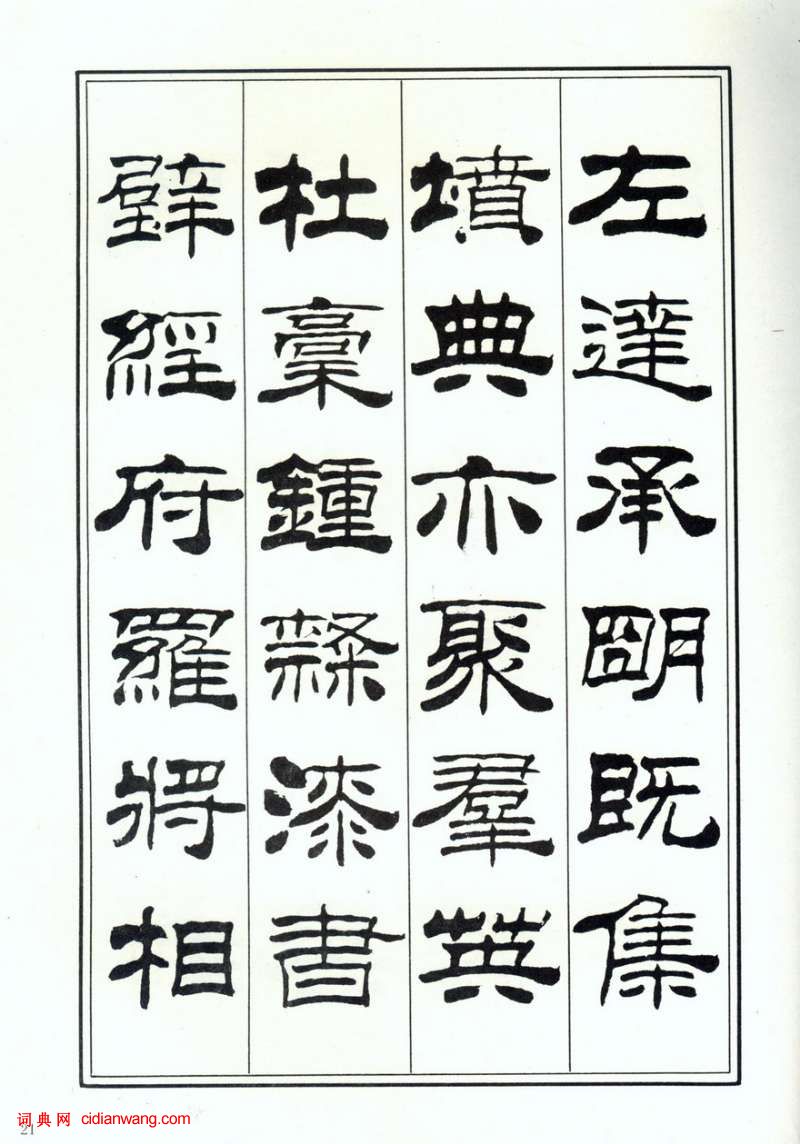 左達承明既集
墳典亦聚羣英
杜稾鍾隸漆書
壁經府羅將相
词典网 cidianwang.com
21